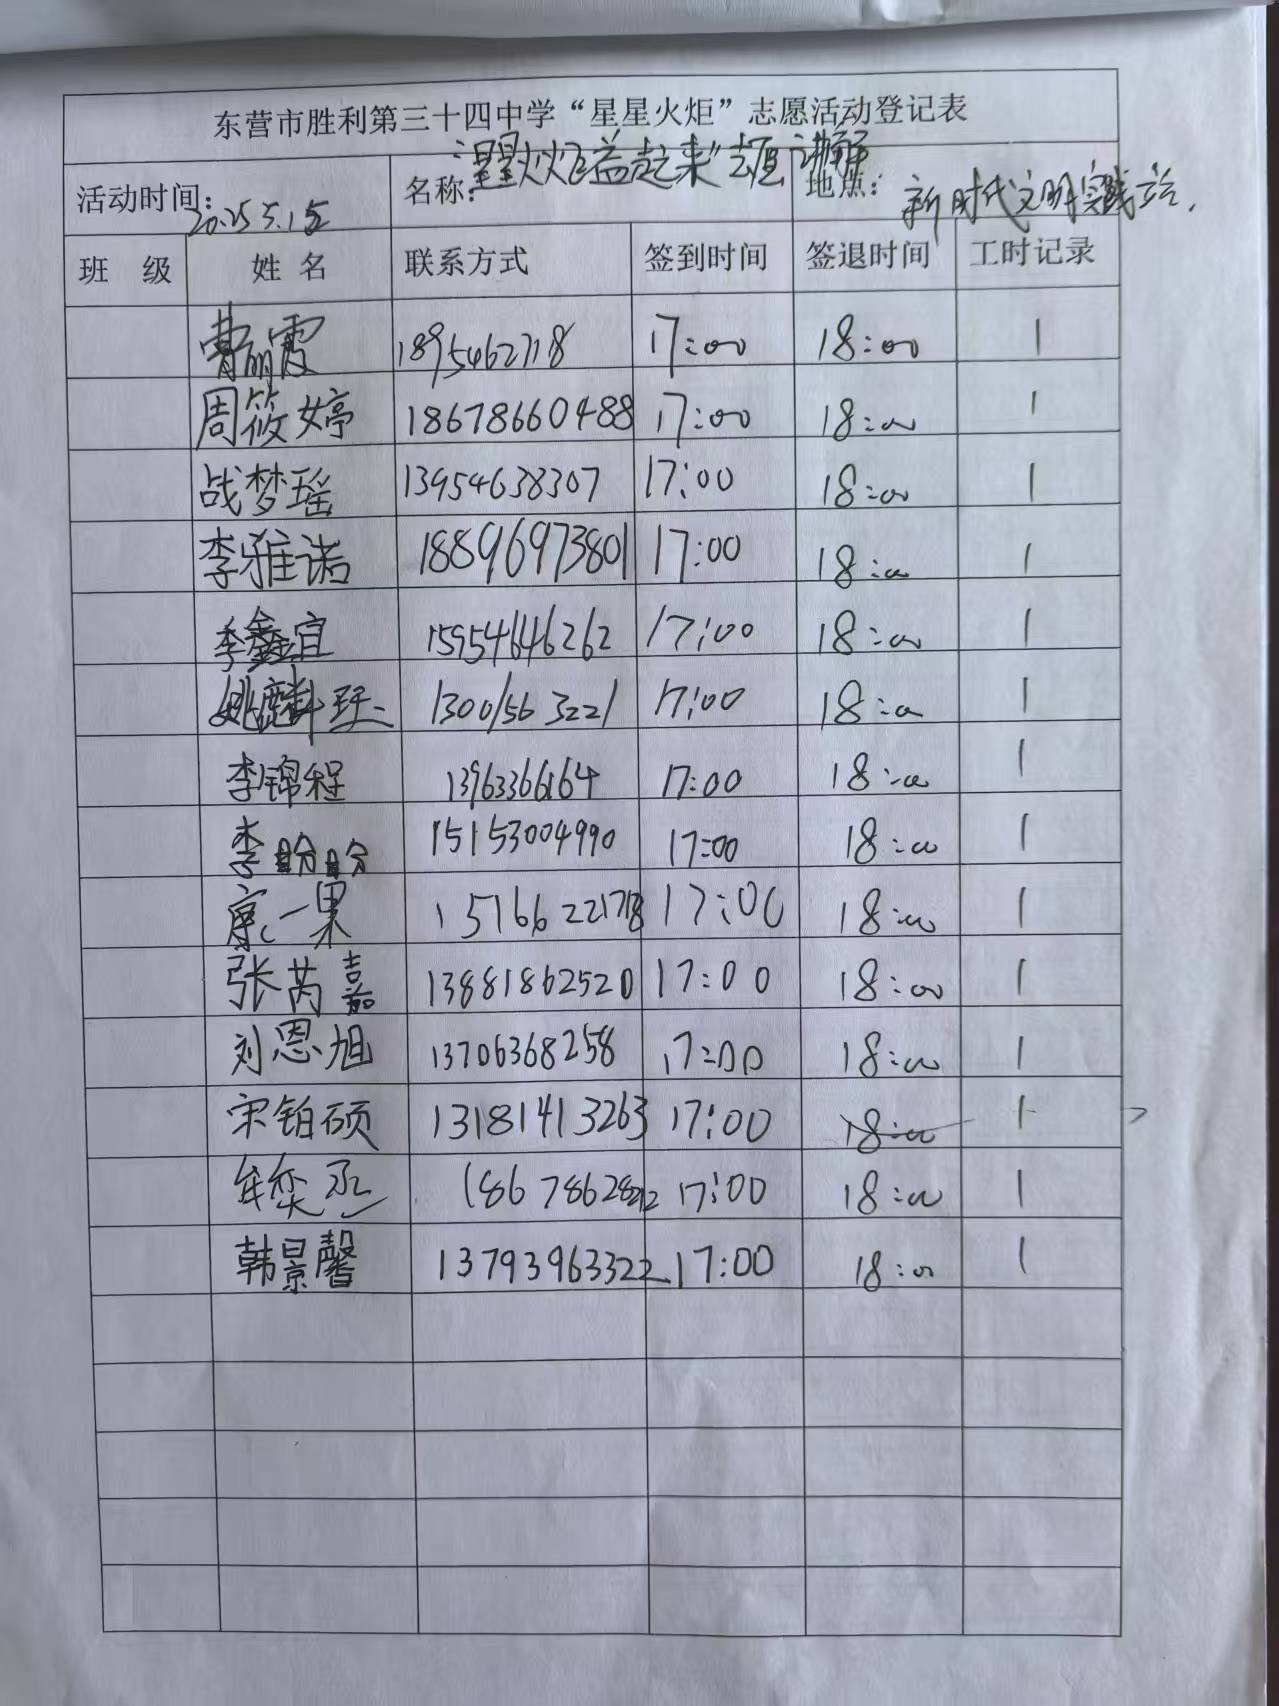 东营市胜利第三十四中学“星星火炬”志愿活动登记表
活动时间： 2025 5.15 名称： “星星火炬益起来”志愿讲解 地点： 新时代文明实践站.
班 级 姓 名 联系方式 签到时间 签退时间 工时记录
曹丽霞 17:00 18:00 1
周筱婷 18678660488 17:00 18:00 1
战梦瑶 13954638307 17:00 18:00 1
李雅诺 18896973801 17:00 18:00 1
李鑫宜 15954646262 17:00 18:00 1
姚麟 13001563221 17:00 18:00 1
李锦程 13963366164 17:00 18:00 1
李盼盼 15153004990 17:00 18:00 1
一果 17:00 18:00 1
张芮嘉 13881862520 17:00 18:00 1
刘恩旭 13706368258 17:00 18:00 1
宋铂硕 13181413263 17:00 18:00 1
17:00 18:00 1
韩景馨 13793963322 17:00 18:00 1